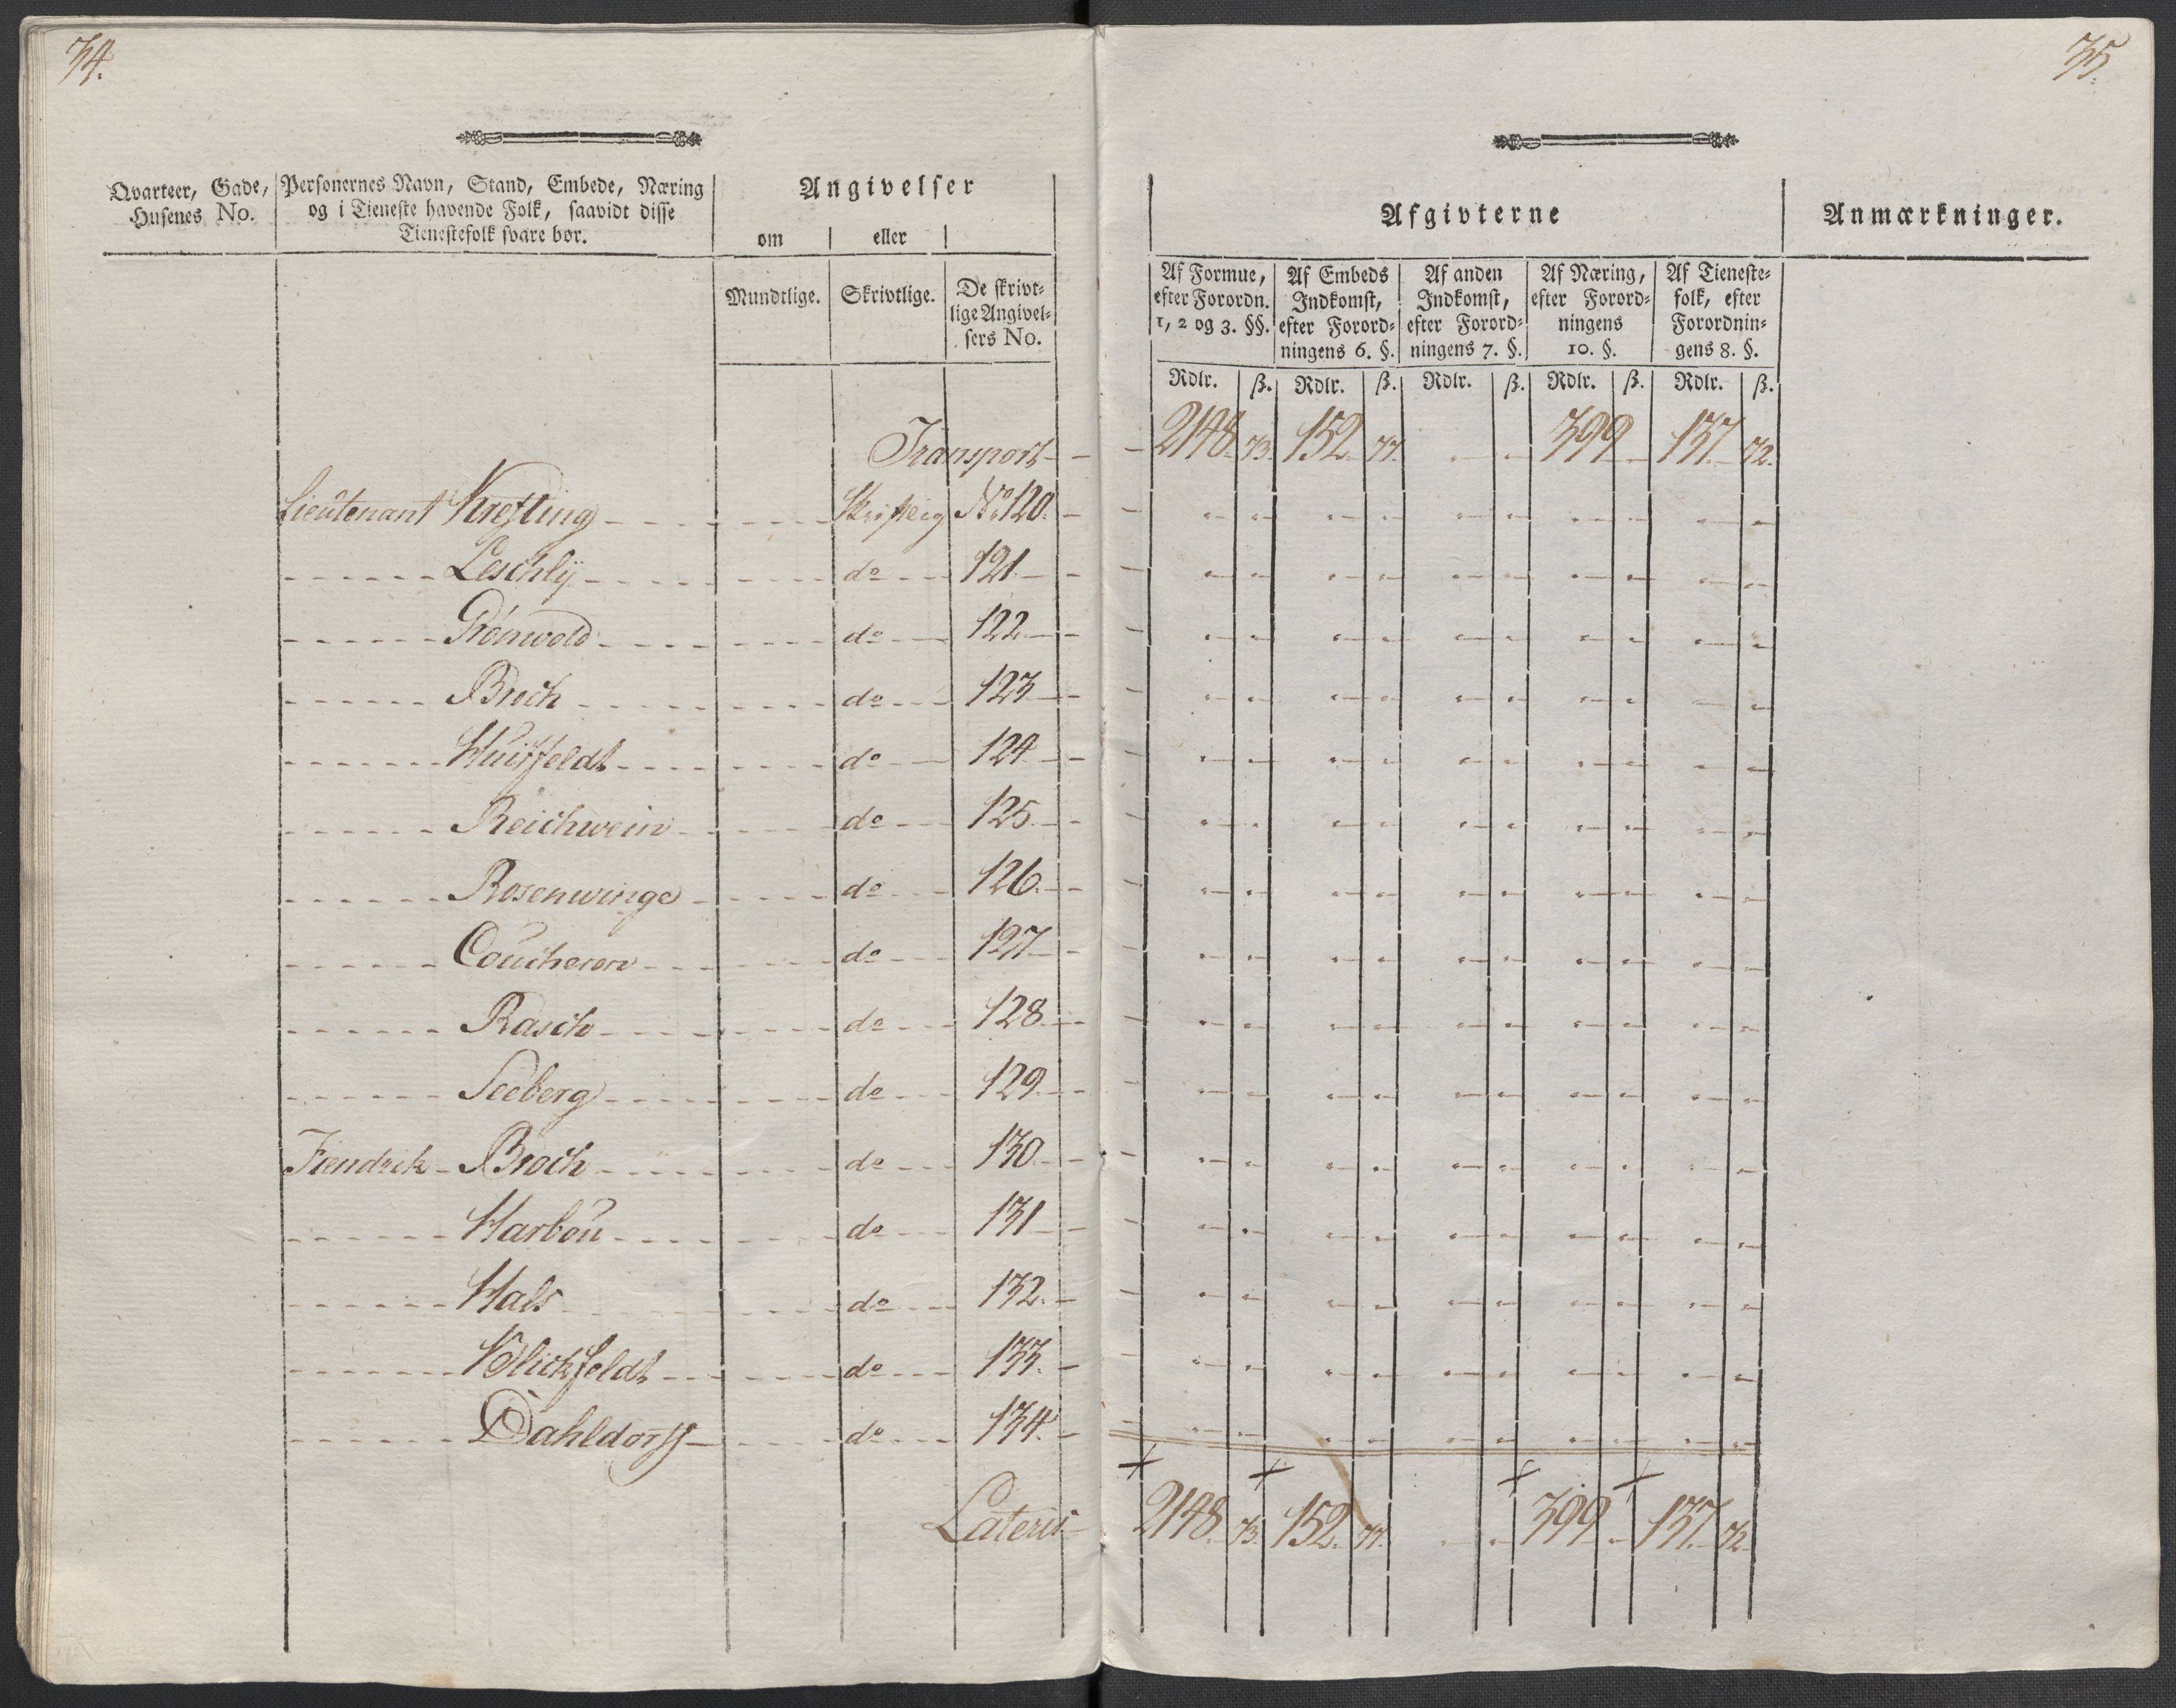 34.
Qvarteer, Gade,
Husenes No.
Personernes Navn, Stand, Embede, Næring
og i Tieneste havende Folk, saavidt disse
Tienestefolk svare bør.
Angivelser
om eller
Mundtlige. Skrivtlige. De skrivt-
lige Angivel-
sers No.
Transport
Lieutenant Krefting Skriftlig No 120.
Leschlÿ do 121.
Grönwold do 122.
Broch do 123
Huitfeldt do 124
Reichwein do 125
Rosenwinge do 126
Coucheron do 127
Rasch do 128
Seeberg do 129
Fiendrick Broch do 130
Harbou do 131
Hals do 132.
Blickfeldt do 133.
Dahldorff do 134.
Lateris
35.
Afgivterne Anmærkninger.
Af Formue,
efter Forordn.
1, 2 og 3. §§.
Af Embeds
Indkomst,
efter Forord-
ningens 6. §.
Af anden
Indkomst,
efter Forord-
ningens 7. §.
Af Næring,
efter Forord-
ningens
10. §.
Af Tieneste-
folk, efter
Forordnin-
gens 8. §.
Rdlr. ß. Rdlr. ß. Rdlr. ß. Rdlr. ß. Rdlr. ß.
2148 73. 152. 77. 399 137. 72.
2148. 73. 152. 77. 399 137. 72